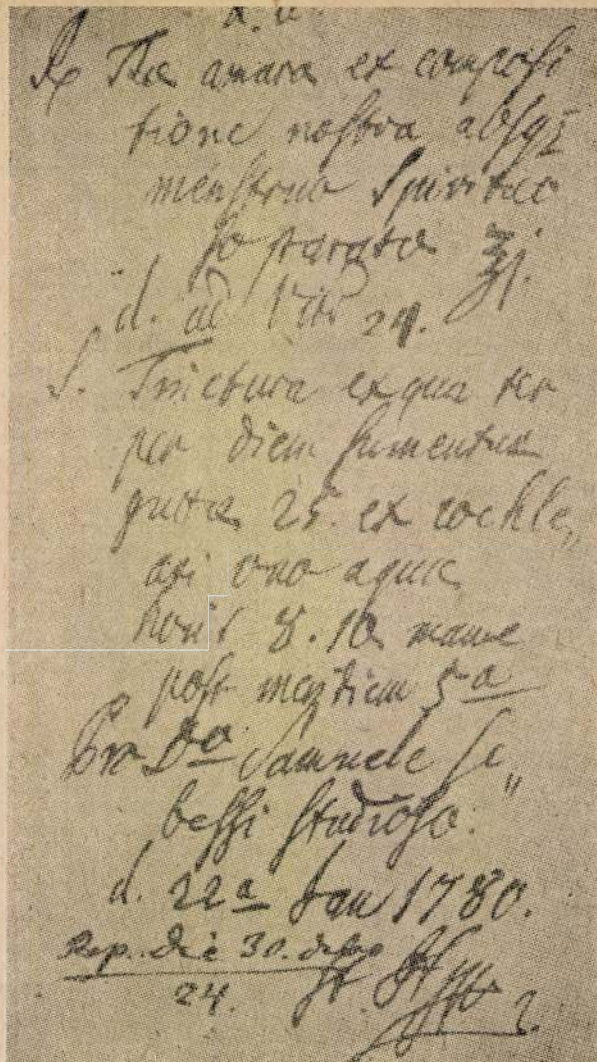 Rp Træ amara ex composi
tione nostra absqȝ
menstruo Spirituo
so paratæ ℥j.
d. ad Vitr 24.
S. Tinctura ex qua ter
per diem sumentur
guttæ 25. ex cochle„
ari uno aquæ
horis 8. 10 mane
post meridiem 5a
Pro Do Samuele Se„
bessi studioso.
d. 22a Jan 1780.
Rep. die 30.
24.